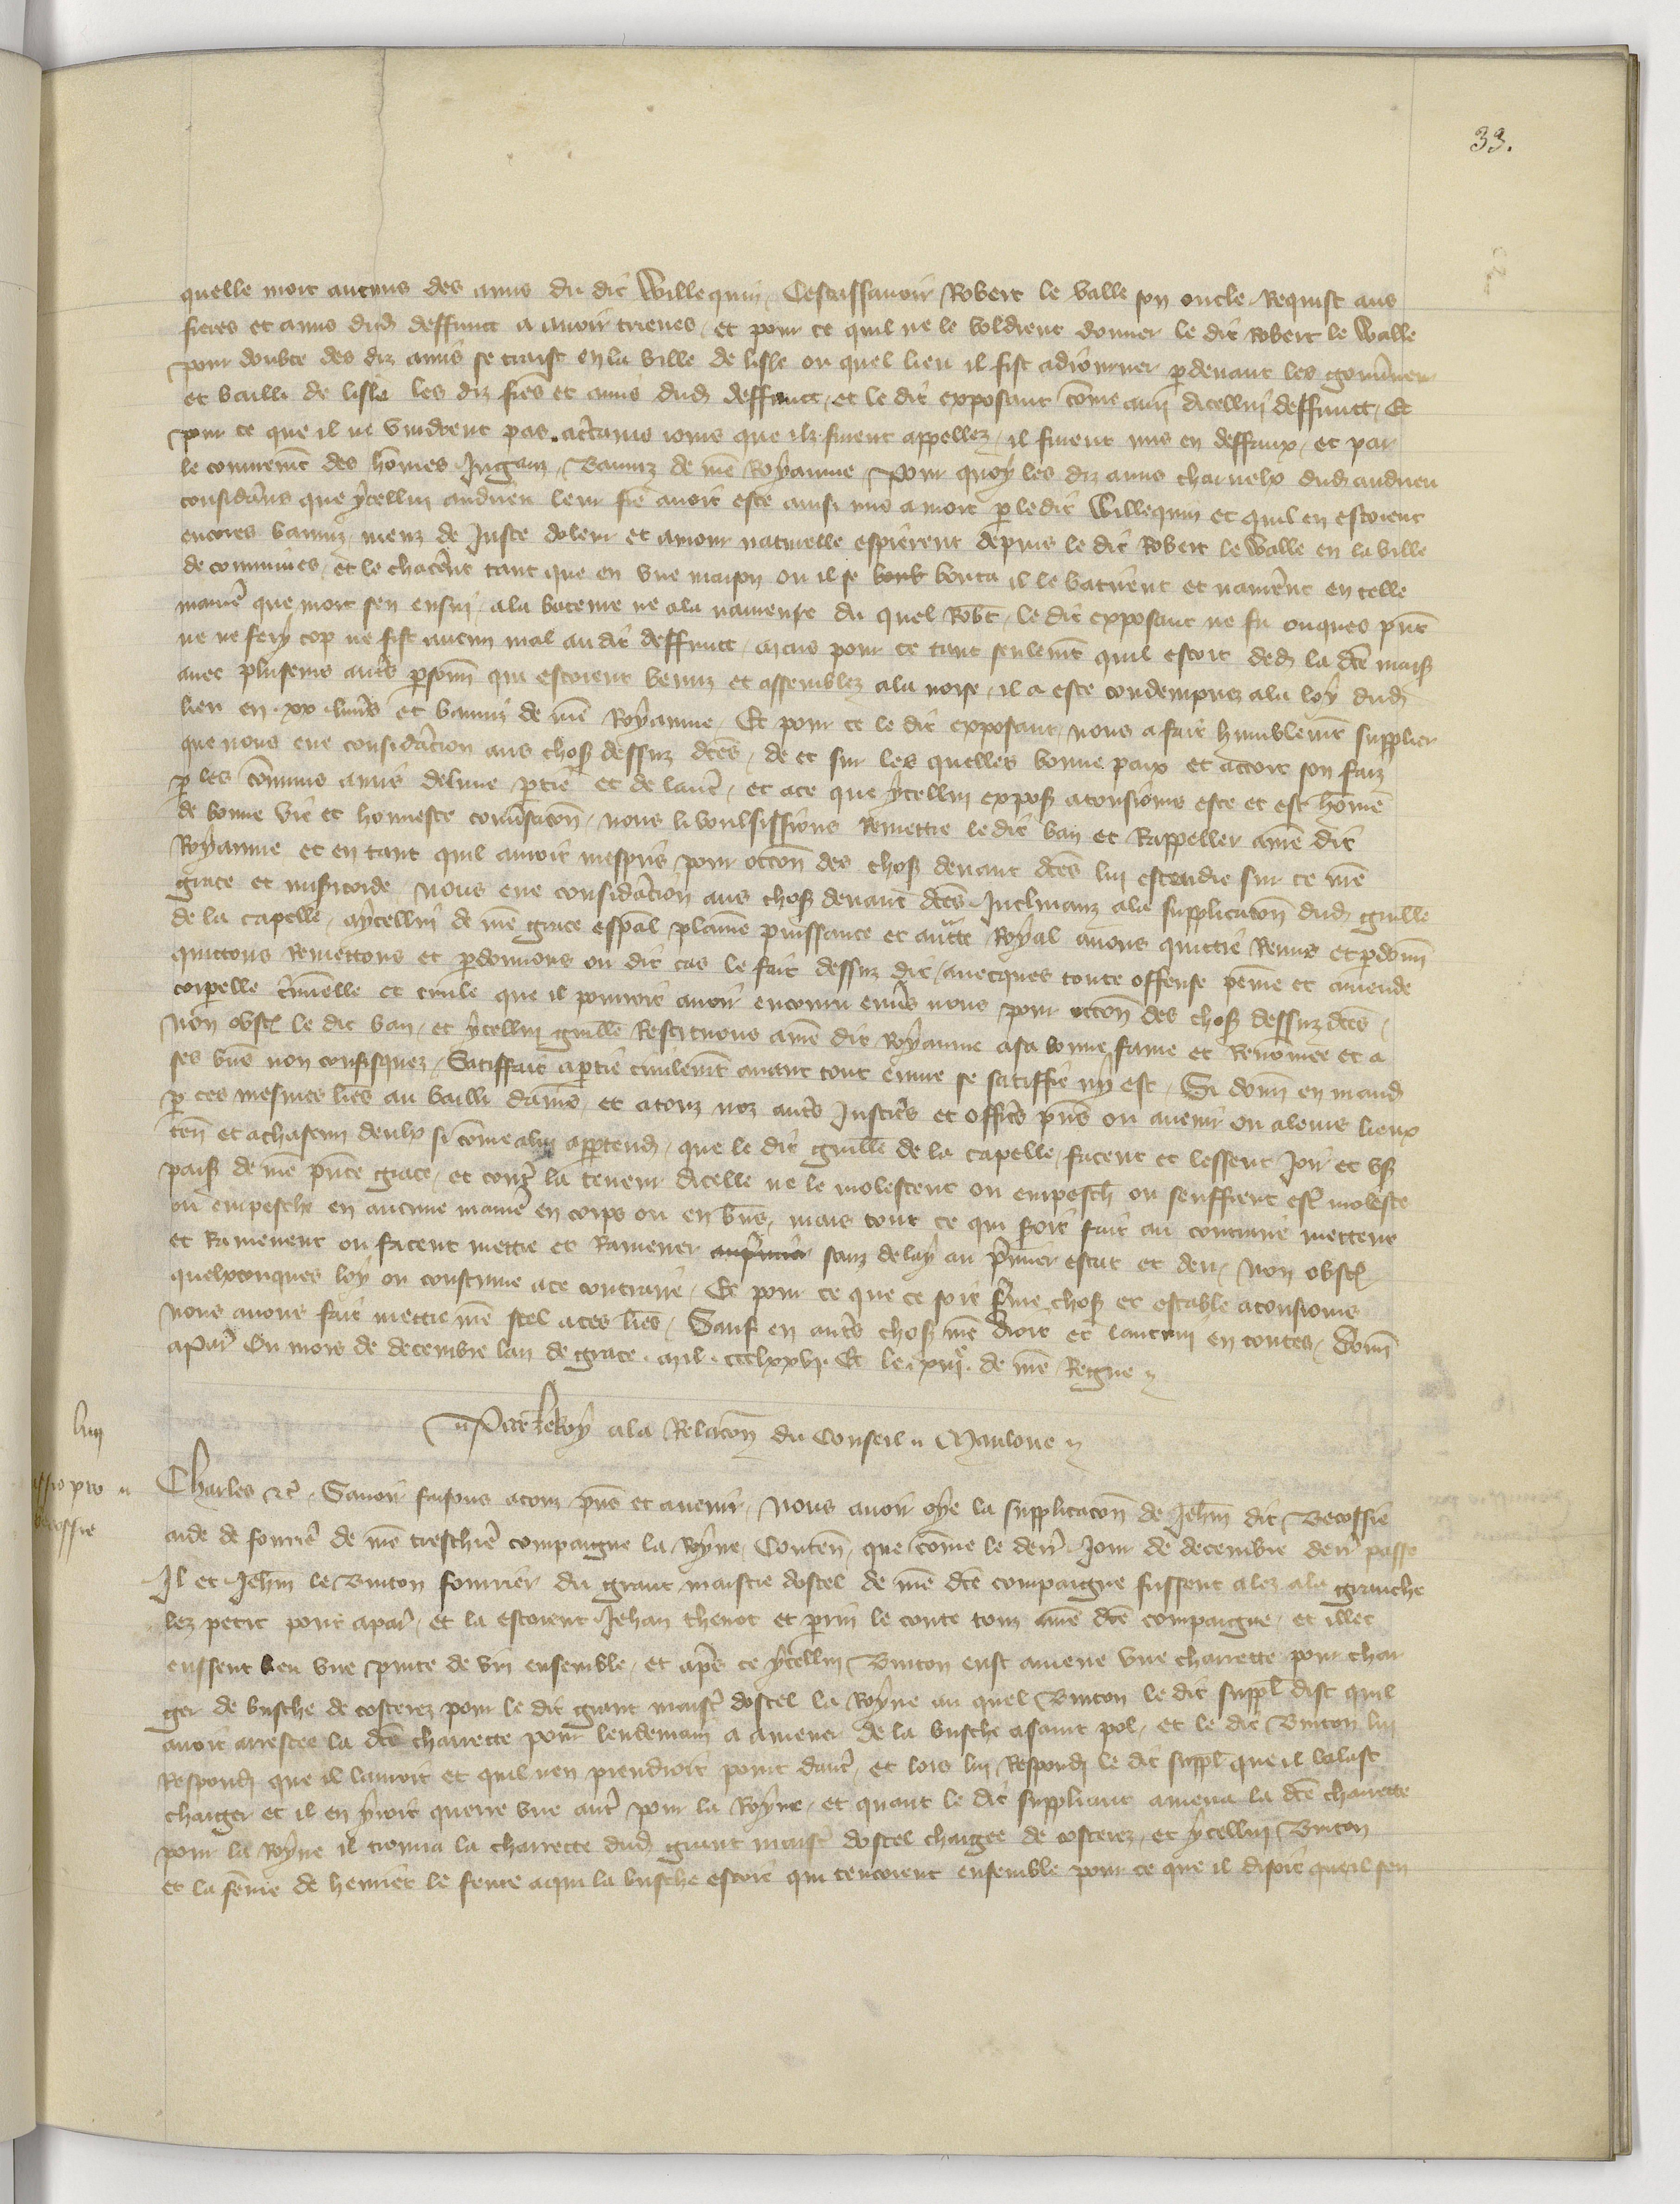 33.
quelle mort aucuns des amis du dit Willequin, Cestassavoir Robert le Valle son oncle Requist aus
freres et amis dud deffunct a avoir trieves, et pour ce quil ne le voldrent donner le dit Robert le Walle
pour doubte des diz amis se traist en la ville de lisle ou quel lieu il fist adiourner pdevant les gouvneur
et bailli de lisle les diz fres et amis dud deffunct, et le dit exposant come ami dicellui deffunct, Et
pour ce que il ne vindrent pas actains iours que ilz furent appellez, il furent mis en deffaux, et par
le couvremt des homes Jugans, Banniz de nre Royaume Pour quoy les diz amis charnelx dud andrieu
considans que ycellui andrieu leur fre avoit este ainsi mis a mort p le dit Willequin et quil en estoient
encores banniz, meuz de Juste doleur et amour naturelle espierent depuis le dit Robert le Walle en la ville
de commines, et le chacerent tant que en une maison ou il se bout bouta il le batirent et navrerent en telle
maniere que mort sen ensui, ala bateure ne ala navreure du quel Robt, le dit exposant ne fu onques pnt
ne ne fery cop ne fist aucun mal audit deffunct, mais pour ce tant seulemt quil estoit ded la dte mais
avec pluseurs autres psonn qui estoient venuz et assemblez ala noise, il a este condempnez ala loy dud
lieu en xx livres et banniz de nre Royaume. Et pour ce le dit exposant nous a fait humblemt supplier
que nous eue consideracion aus chos dessuz dtes, de et sur les quelles bonne paix et accort son faiz
p les comuns amis delune ptie et de lautre, et ace que ycellui expos atousiours este et est home
de bonne vie et honneste convsacon, nous li voulsissions Remettre ledit ban et Rappeller anre dit
Royaume et en tant quil avoit mespris pour occon des chos devant dtes lui estendre sur ce nre
grace et misicorde, nous eue consideracion aus chos devant dtes Inclinanz ala supplicacon dud guille
de la capelle, aycellui de nre grace espal plaine puissance et auctte Royal avons quittie Remis et pdonn
quittons Remettons et pdonnons ou dit cas le fait dessuz dit, avecques toute offense peine et amende
corpelle criminelle et civile que il pourroit avoir encouru envs nous pour occon des chos dessuz dtes,
Non obst le dit ban, et ycellui guille Restituons anre dit Royaume asa bonne fame et Renomee et a
ses biens non confisquez, Satiffait a ptie civilemt avant tout euvre se satiffte ny est, Si donn en mand
p ces mesmes lres au bailli damiens, et atouz noz autres Justiciers et officiers pns ou avenir ou aleurs lieux
ten et achascun deulx si come alui aptend, que le dit guille de la capelle, facent et lessent Joir et us
pais de nre pnte grace, et contre la teneur dicelle ne le molestent ou empesch ou seuffrent est moleste
ou empesche en aucune maniere en corps ou en biens, mais tout ce qui seroit fait au contraire mettent
et Ramenent ou facent mettre et Ramener sanz delay au premier estat et deu, Non obst
quelxconques loy ou coustume ace contraire, Et pour ce que ce soit ferme chos et estable atousiours
nous avons fait mettre nre seel aces lres, Sauf en autres chos nre droit et lautrui en toutes, Donn
aParis Ou mois de decembre lan de grace mil ccclxxvj Et le xiije de nre Regne
Par le Roy ala Relacon du Conseil Mauloue
liiij
Charles etc Savoir faisons atouz pns et avenir, Nous avoir oye la supplicacon de Jehan dit Becossie
aide de fourriere de nre treschiere compaigne la Royne, Conten, que come le denr Jour de decembre denr passe
Il et Jehan le Buton fourrier du grant maistre dostel de nre dte compaigne fussent alez ala granche
lez petit pont apar, et la estoient Jehan thenot et prin le conte touz anre dte compaigne, et illec
eussent beu une pinte de vin ensemble, et apres ce ycellui Buton eust amene une charrette pour char
ger de busche de costerez pour le dit grant maist dostel la Royne au quel Buton le dit suppl dist quil
avoit arrestee la dte charrette pour lendemain a amener de la busche asaint pol, et le dit Buton lui
Respondi que il lauroit et quil nen prendroit point dautre, et lors lui Respondi le dit suppl que il lalast
charger et il en yroit querre une autre pour la Royne, et quant le dit suppliant amena la dte charrette
pour la Royne il trouva la charrette dud grant maist dostel chargee de costerez, et ycellui Buton
et la feme de henriet le feure aqui la busche estoit qui tencoient ensemble pour ce que il disoit que il sen